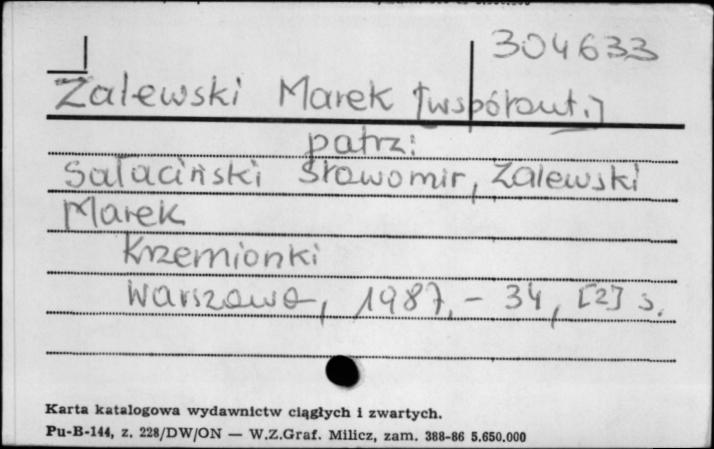 304633
Zalewski Marek [współaut.]
patrz:
Sałaciński Sławomir, Zalewski
Marek
Krzemionki
Warszawa, 1987, - 34, [2] s.
Karta katalogowa wydawnictw ciągłych i zwartych.
Pu-B-144, z. 228/DW/ON — W.Z.Graf. Milicz, zam. 388-86 5.650.000